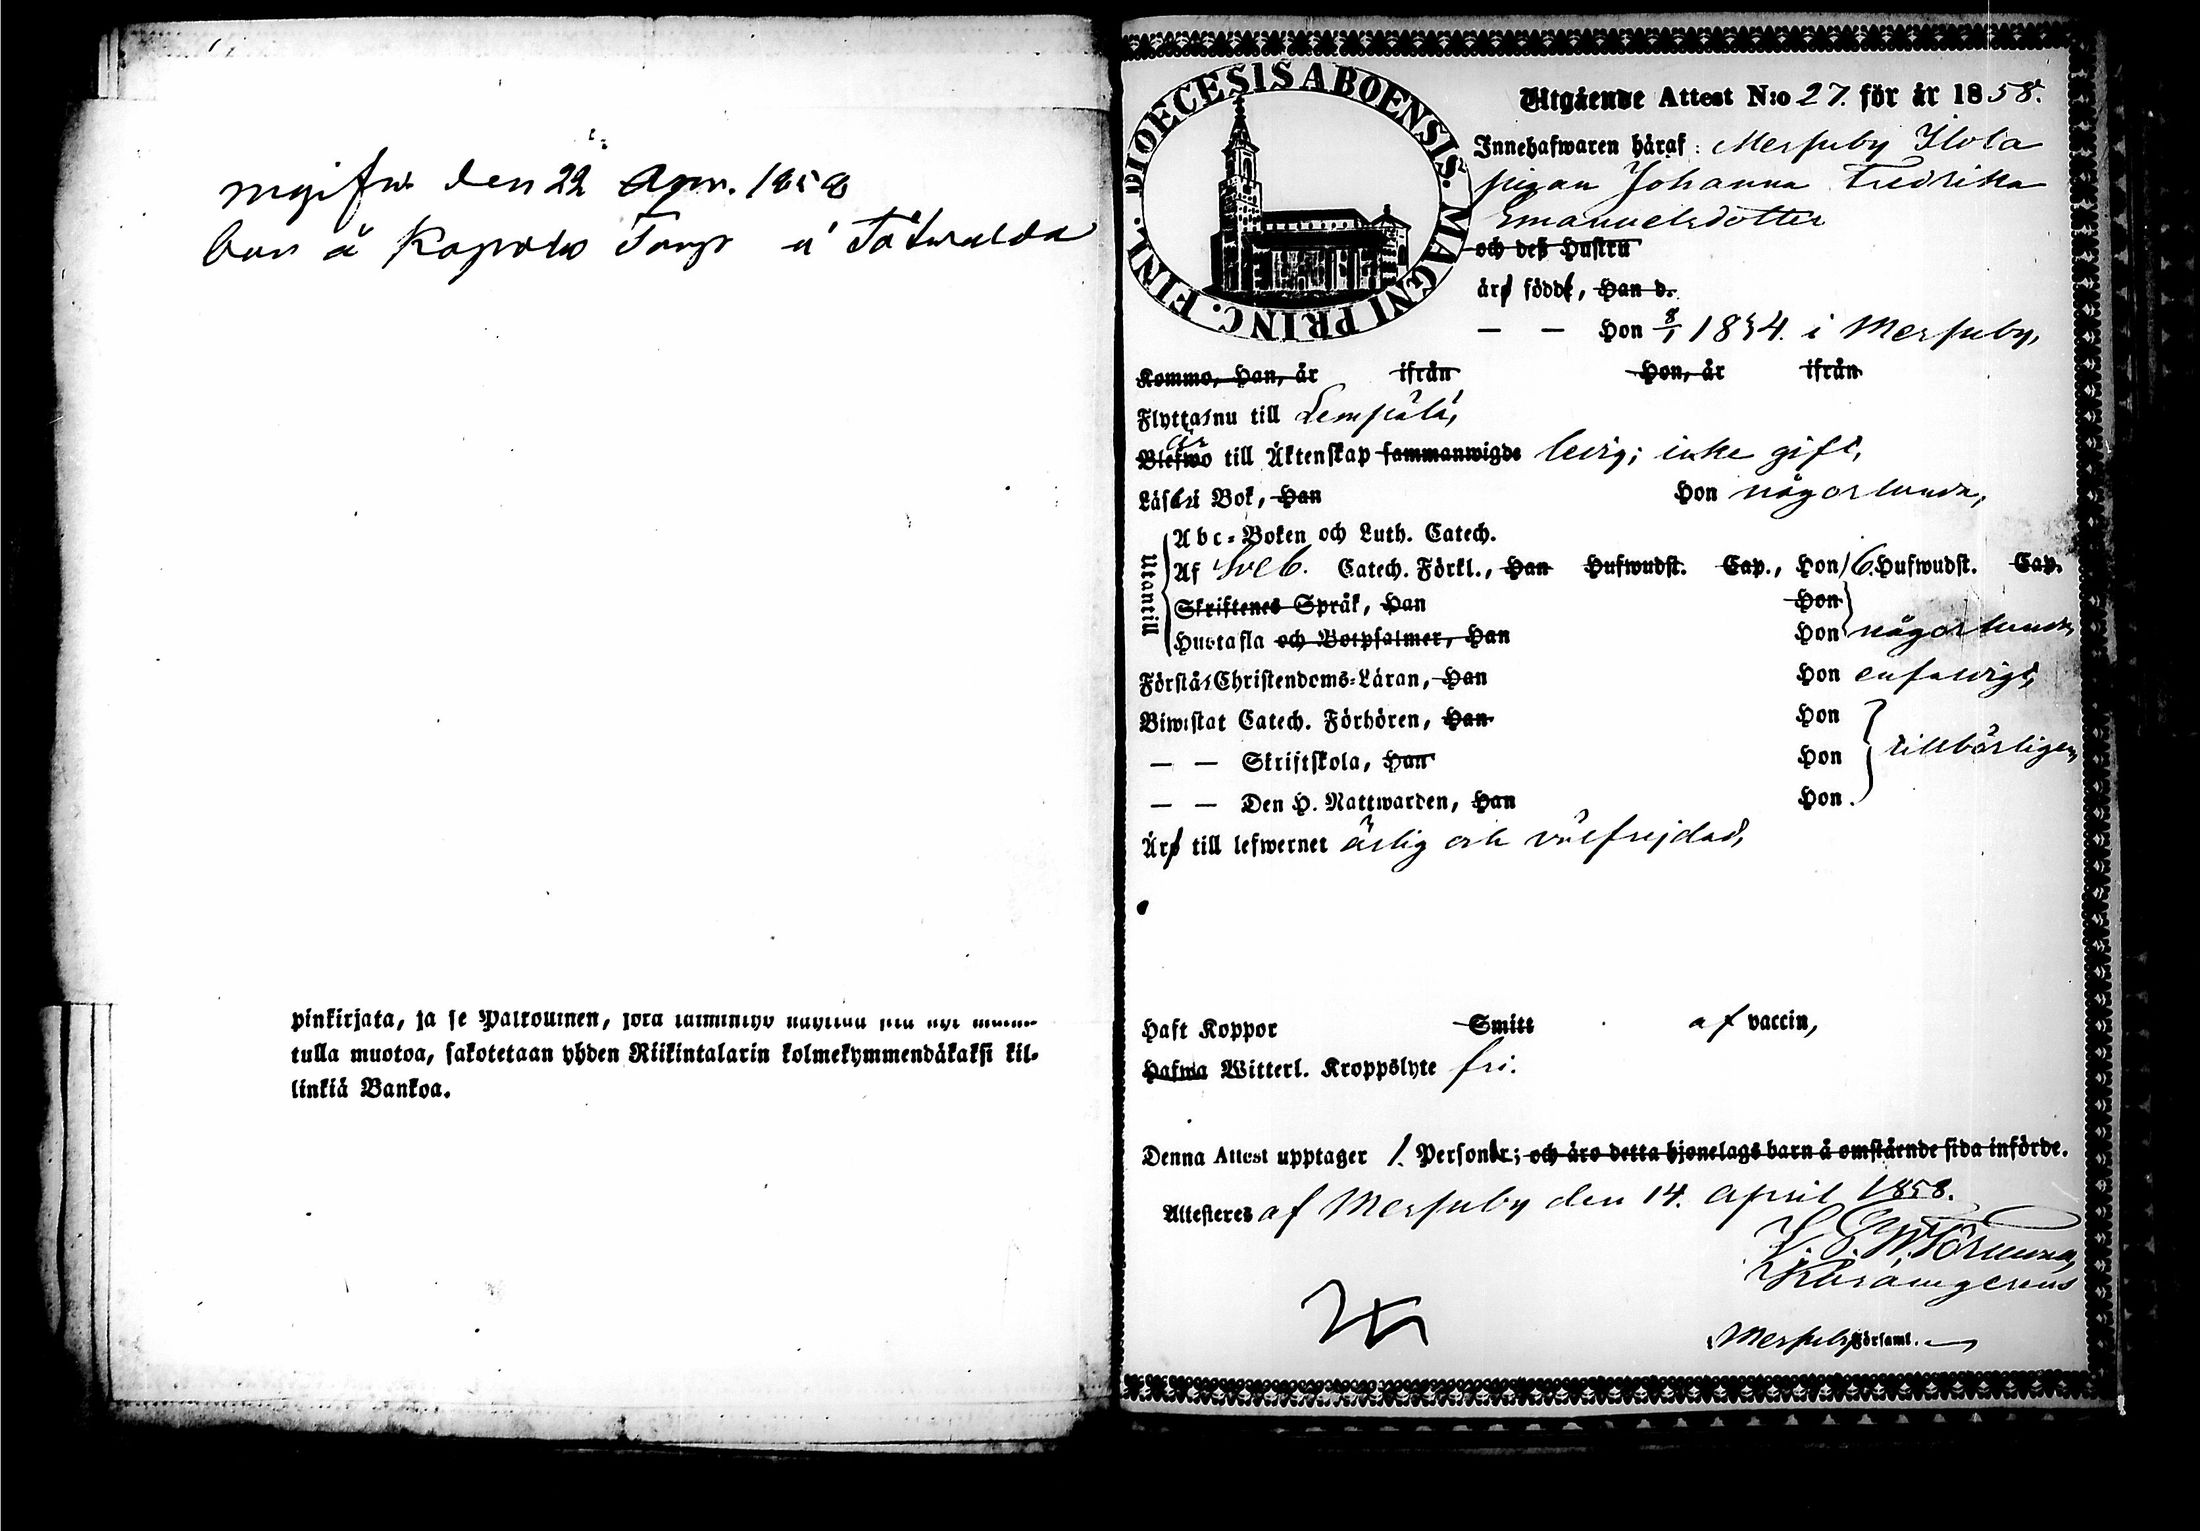 den 22 Apr. 1858
bor å Kapola Torp
pinkirjata, ja se Palkollinen, jota
tulla muotoa, sakotetaan yhden Riikintalarin kolmekymmendäkaksi kil-
linkiä Bankoa.
DIOECESIS ABOENSIS. MAGNI PRINC. FINL.
Utgående Attest N:o 27. för år 1858.
Innehafwaren häraf: Messuby Ilola
pigan Johanna Fredrika
Emanuelsdotter
och deß Hustru
äro födde, Han d.
— — Hon 8/1 1834. i Messuby,
Kommo, Han, år ifrån Hon, år ifrån
Flytta nu till Lempälä,
är
Blefwo till Äktenskap sammanwigde ledig; icke gift,
Läsa i Bok, Han Hon någorlunda,
Utantill
Abc-Boken och Luth. Catech.
Af Sveb. Catech. Förkl., Han Hufwudst. Cap., Hon 6. Hufwudst. Cap.
Skriftenes Språk, Han Hon
Hustafla och Botpsalmer, Han Hon någorlunda
Förstå Christendoms-Läran, Han Hon enfaldigt,
Biwistat Catech. Förhören, Han Hon
— — Skriftskola, Han Hon tillbörligen,
— — Den H. Nattwarden, Han Hon
Äro till lefwernet ärlig och välfrejdad,
Haft Koppor Smitt af vaccin,
Hafwa Witterl. Kroppslyte fri.
Denna Attest upptager 1. Personer; och äro detta hjonelags barn å omstående sida införde.
Attesteres af Messuby den 14. April 1858.
Messuby Församl.